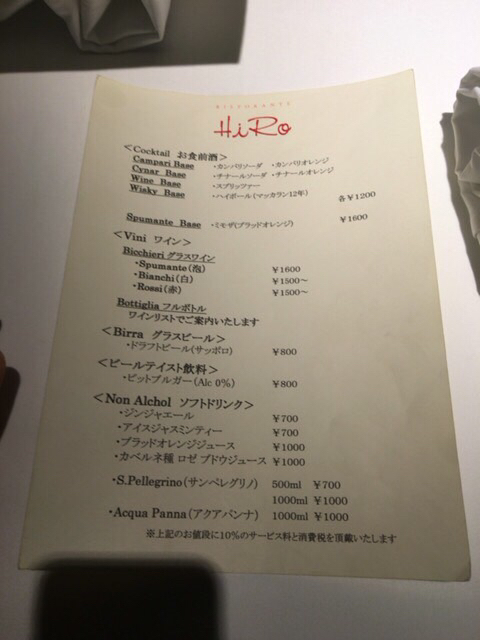 RISTORANTE
HiRo
＜Cocktail お食前酒＞
Campari Base ・カンパリソーダ ・カンパリオレンジ
Cynar Base ・チナールソーダ ・チナールオレンジ
Wine Base ・スプリッツァー
Wisky Base ・ハイボール（マッカラン12年） 各￥1200
Spumante Base ・ミモザ(ブラッドオレンジ) ￥1600
＜Vini ワイン＞
Bicchieri グラスワイン
・Spumante(泡) ￥1600
・Bianchi(白) ￥1500～
・Rossi(赤) ￥1500～
Bottiglia フルボトル
ワインリストでご案内いたします
＜Birra グラスビール＞
・ドラフトビール(サッポロ) ￥800
＜ビールテイスト飲料＞
・ビットブルガー(Alc 0%) ￥800
＜Non Alchol ソフトドリンク＞
・ジンジャエール ￥700
・アイスジャスミンティー ￥700
・ブラッドオレンジジュース ￥1000
・カベルネ種 ロゼ ブドウジュース ￥1000
・S.Pellegrino（サンペレグリノ） 500ml ￥700
1000ml ￥1000
・Acqua Panna（アクアパンナ） 1000ml ￥1000
※上記のお値段に10%のサービス料と消費税を頂戴いたします